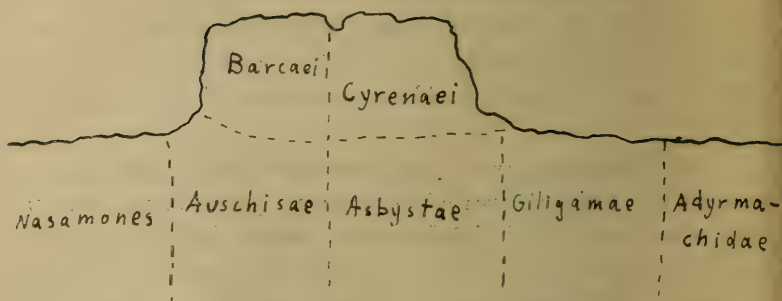 Barcaei
Cyrenaei
Nasamones
Auschisae
Asbystae
Giligamae
Adyrma-
chidae